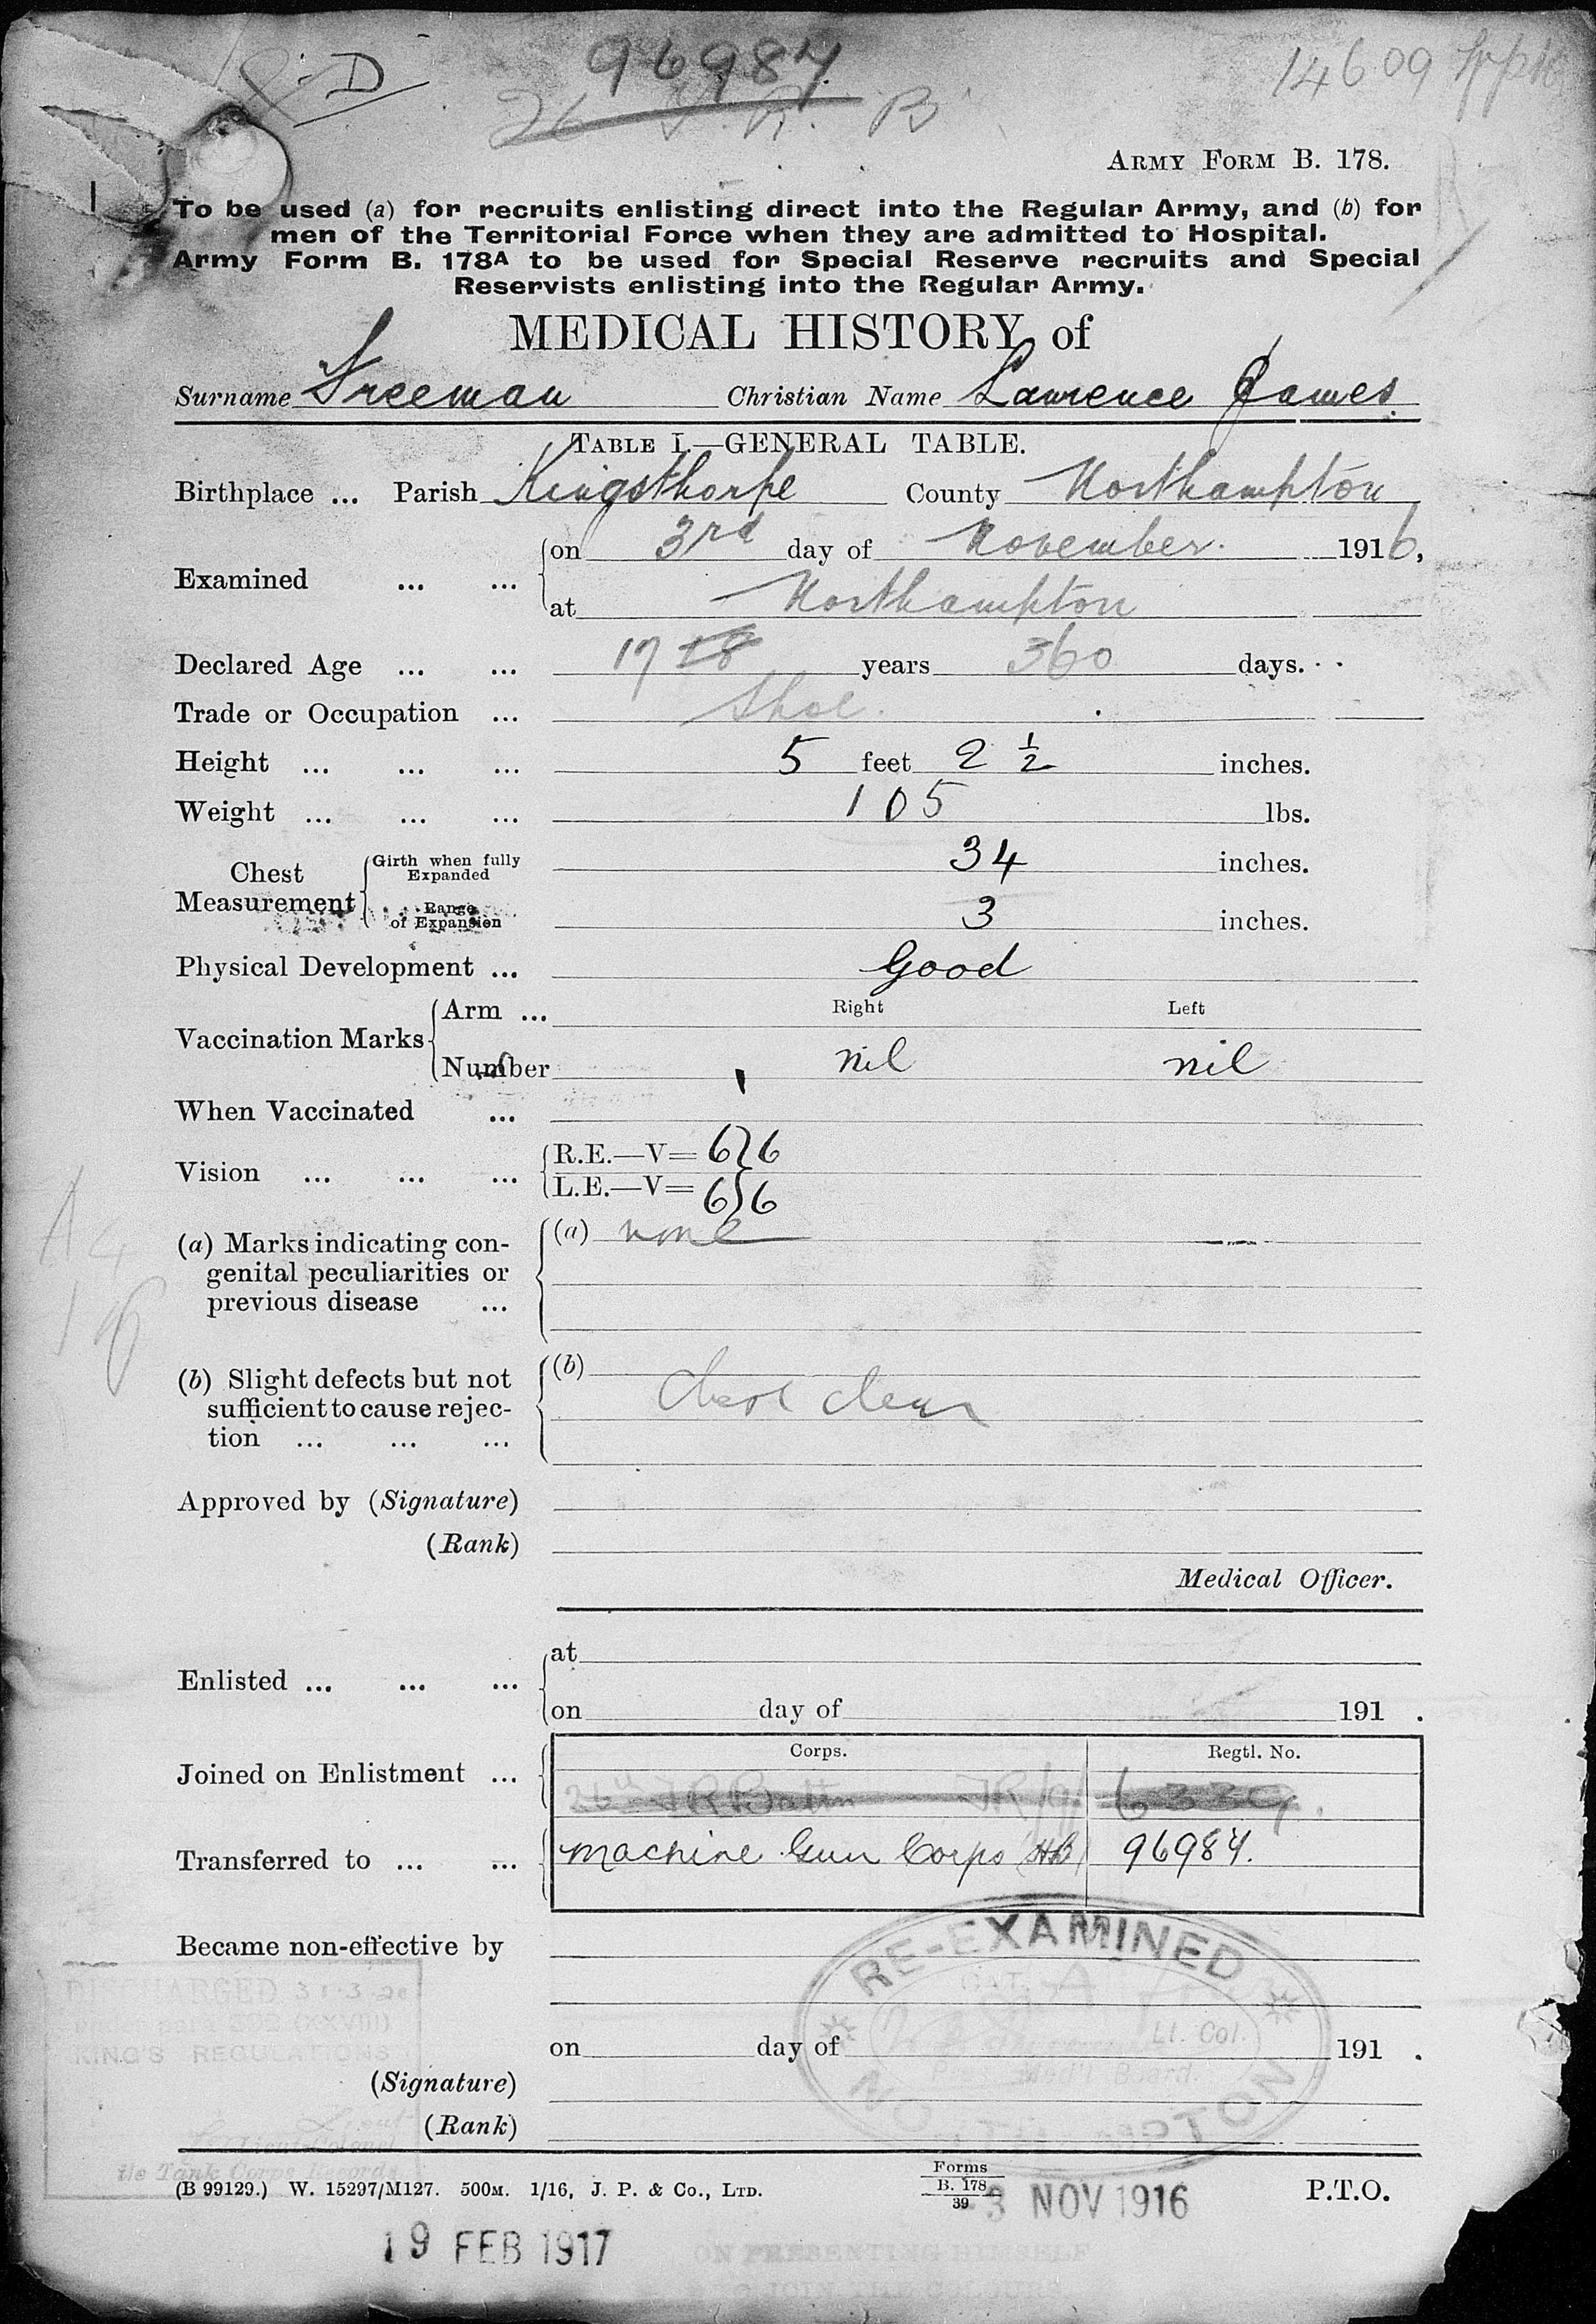 96984
26 T. R. B
14609
ARMY FORM B. 178.
To be used (a) for recruits enlisting direct into the Regular Army, and (b) for
men of the Territorial Force when they are admitted to Hospital.
Army Form B. 178A to be used for Special Reserve recruits and Special
Reservists enlisting into the Regular Army.
MEDICAL HISTORY of
Surname Freeman Christian Name Lawrence James
TABLE I.—GENERAL TABLE.
Birthplace ... Parish Kingsthorpe County Northampton
Examined ... ... on 3rd day of November. 1916,
at Northampton
Declared Age ... ... 17 18 years 360 days.
Trade or Occupation ... Shoe.
Height ... ... ... 5 feet 2 ½ inches.
Weight ... ... ... 105 lbs.
Chest Measurement Girth when fully Expanded 34 inches.
Range of Expansion 3 inches.
Physical Development ... Good
Vaccination Marks Arm ... Right Left
Number nil nil
When Vaccinated ...
Vision ... ... ... R.E.—V= 6/6
L.E.—V= 6/6
(a) Marks indicating con- (a) none
genital peculiarities or
previous disease ...
(b) Slight defects but not (b)
sufficient to cause rejec- Chest clear
tion ... ... ...
Approved by (Signature)
(Rank)
Medical Officer.
Enlisted ... ... ... at
on day of 191 .
Corps. Regtl. No.
Joined on Enlistment ... 26th TR Battn TR/9/ 6339.
Transferred to ... ... Machine Gun Corps (HB) 96984.
RE-EXAMINED
CAT. A
Became non-effective by
DISCHARGED 31.3.20
392 (XXVIII)
KING'S REGULATIONS
Lt. Col.
Pres. Med'l Board.
NORTHAMPTON
on day of 191 .
(Signature)
(Rank)
Lieut
Lieut-Colonel
i/c Tank Corps Records
(B 99129.) W. 15297/M127. 500M. 1/16, J. P. & Co., LTD. Forms B. 178 39 P.T.O.
3 NOV 1916
19 FEB 1917
ON PRESENTING HIMSELF
TO JOIN THE COLOURS